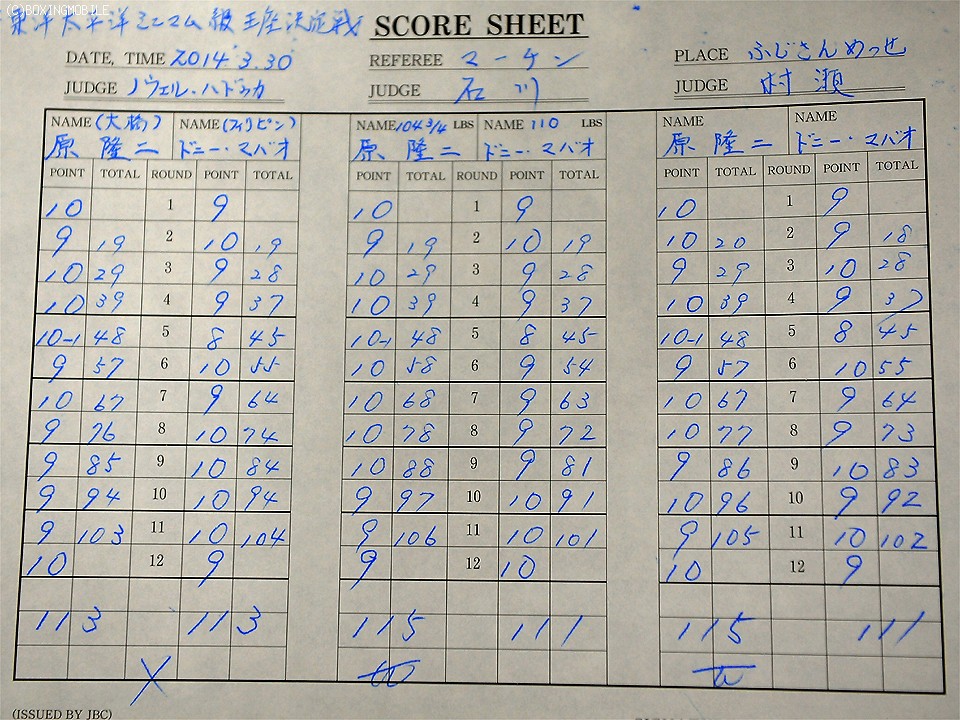 (C)BOXINGMOBILE
東洋太平洋ミニマム級王座決定戦 SCORE SHEET
DATE, TIME 2014 3.30 REFEREE マーテン PLACE ふじさんめっせ
JUDGE ノウェル・ハドゥカ JUDGE 石川 JUDGE 村瀬
NAME (大橋) NAME (フィリピン) NAME 104 3/4 LBS NAME 110 LBS NAME NAME
原 隆二 ドニー・マバオ 原 隆二 ドニー・マバオ 原 隆二 ドニー・マバオ
POINT TOTAL ROUND POINT TOTAL POINT TOTAL ROUND POINT TOTAL POINT TOTAL ROUND POINT TOTAL
10 1 9 10 1 9 10 1 9
9 19 2 10 19 9 19 2 10 19 10 20 2 9 18
10 29 3 9 28 10 29 3 9 28 9 29 3 10 28
10 39 4 9 37 10 39 4 9 37 10 39 4 9 37
10-1 48 5 8 45 10-1 48 5 8 45 10-1 48 5 8 45
9 57 6 10 55 10 58 6 9 54 9 57 6 10 55
10 67 7 9 64 10 68 7 9 63 10 67 7 9 64
9 76 8 10 74 10 78 8 9 72 10 77 8 9 73
9 85 9 10 84 10 88 9 9 81 9 86 9 10 83
9 94 10 10 94 9 97 10 10 91 10 96 10 9 92
9 103 11 10 104 9 106 11 10 101 9 105 11 10 102
10 12 9 9 12 10 10 12 9
113 113 115 111 115 111
(ISSUED BY JBC)